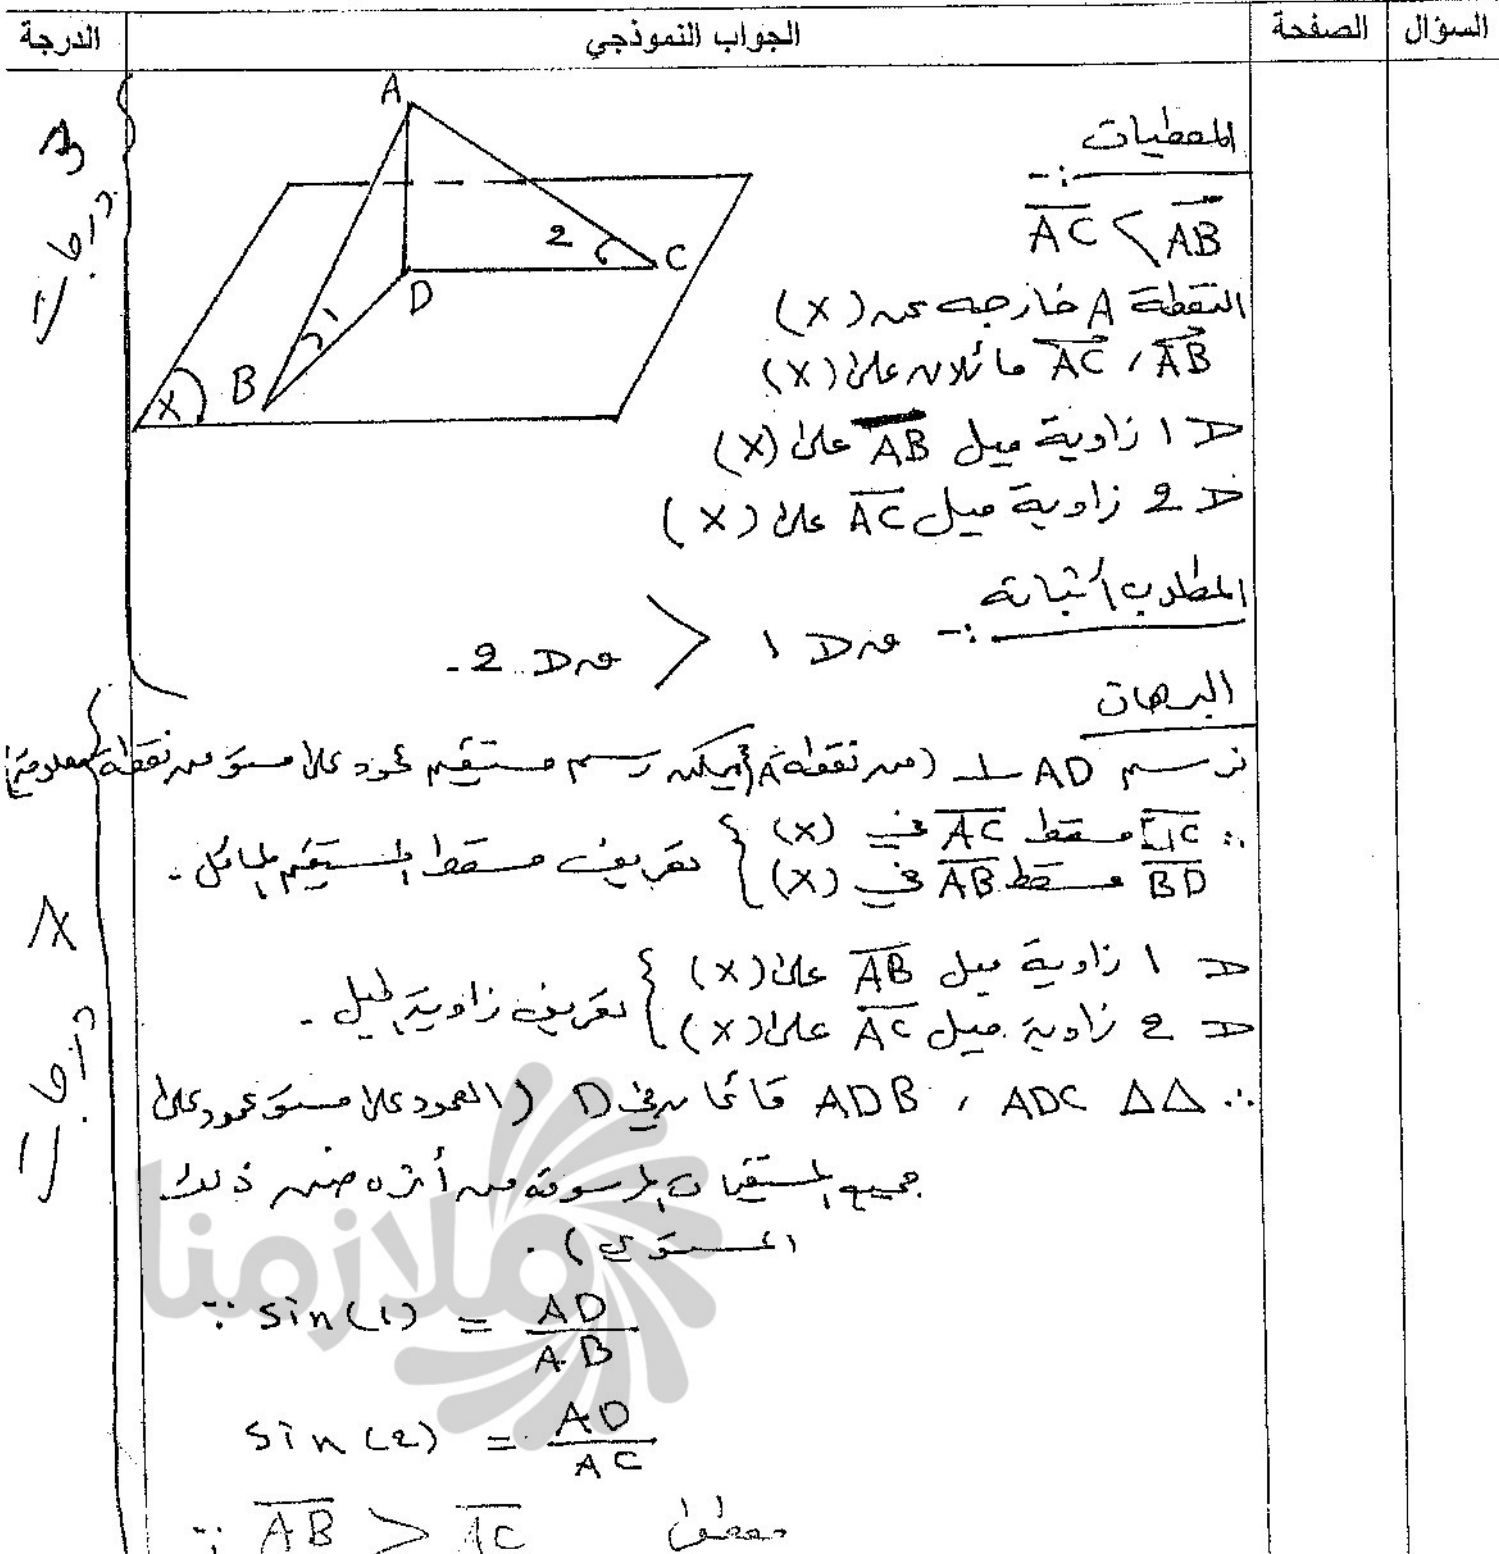 السؤال الصفحة الجواب النموذجي الدرجة
A
2
C
D
1
B
X
المعطيات :-
AC < AB
النقطة A خارجه عن (X)
AB , AC مائلان على (X)
∢ 1 زاوية ميل AB على (X)
∢ 2 زاوية ميل AC على (X)
المطلوب أثباته :- ق ∢ 1 < ق ∢ 2 .
البرهان
نرسم AD ⊥ (من نقطة A) (يمكن رسم مستقيم عمود على مستو من نقطة معلومة)
∴ DC مسقط AC في (X)
BD مسقط AB في (X) } تعريف مسقط المستقيم المائل .
∢ 1 زاوية ميل AB على (X)
∢ 2 زاوية ميل AC على (X) } تعريف زاوية الميل .
∴ △△ ADB , ADC قائما في D (العمود على مستو عمود على
جميع المستقيمات المرسومة من أثره ضمن ذلك
المستوي) .
∵ sin(1) = AD / AB
sin(2) = AD / AC
∵ AB > AC معطى
ملازمنا